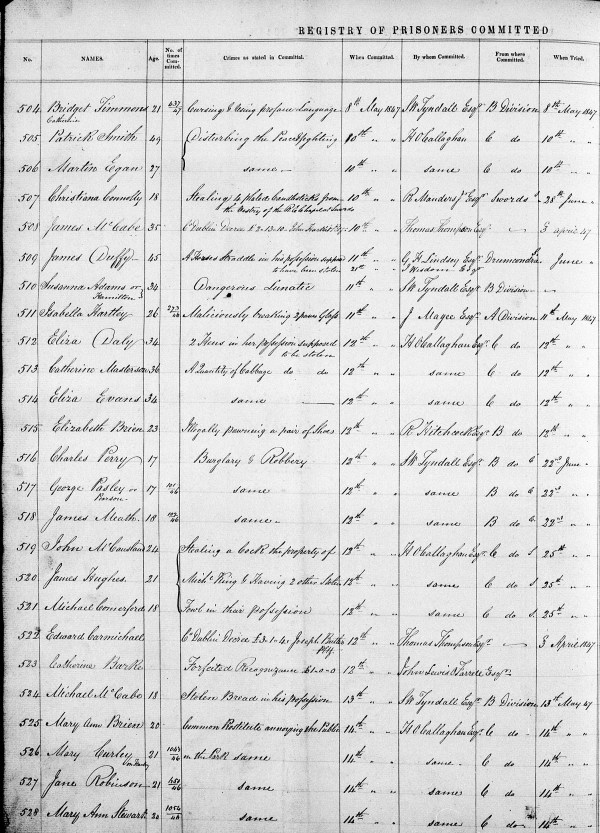 REGISTRY OF PRISONERS COMMITTED
No. NAMES. Age. No. of times Committed. Crimes as stated in Committal. When Committed. By whom Committed. From where Committed. When Tried.
504 Bridget Timmons 21 Cursing & Using profane Language 8th May 1847 W Tyndall Esqr B Division 8th May 1847
Catherine
505 Patrick Smith 49 Disturbing the Peace & fighting 10th " " H O'Callaghan C do 10th " "
506 Martin Egan 27 same 10th " " same C do 10th " "
507 Christiana Connolly 18 Stealing 4 plated Candlesticks from 10th " " R Manders Jr Esqr Swords 28th June "
the Vestry of the Chapel Swords
508 James McCabe 35 Co Dublin Decree £2-13-10 John 10th " " Thomas Thompson Esqr 3 april 47
509 James Duffy 45 A Horses Straddle in his possession supposed 11th " " G H Lindsey Esqr Drumcondra June "
to have been stolen 21st " " J Wisdom Esqr
510 Susanna Adams or 34 Dangerous Lunatic 11th " " W Tyndall Esqr B Division
Hamilton
511 Isabella Hartley 26 Maliciously breaking 2 panes Glass 11th " " J Magee Esqr A Division 11th May 1847
512 Eliza Daly 34 2 Hens in her possession supposed 12th " " H O'Callaghan Esqr C do 12th " "
to be stolen
513 Catherine Masterson 36 A Quantity of Cabbage do do 12th " " same C do 12th " "
514 Eliza Evans 34 same 12th " " same C do 12th " "
515 Elizabeth Brien 23 Illegally pawning a pair of Shoes 12th " " R Hitchcock Esqr B do 12th " "
516 Charles Perry 17 Burglary & Robbery 12th " " W Tyndall Esqr B do C 22nd June "
517 George Pasley or 17 101/46 same 12th " " same B do C 22nd " "
Parson
518 James Meath 18 same 12th " " same B do C 22nd " "
519 John McCausland 24 Stealing a Cock the property of 12th " " H O'Callaghan Esqr C do S 25th " "
520 James Hughes 21 Michl King & Having 2 other Stolen 12th " " same C do S 25th " "
521 Michael Comerford 18 Fowl in their possession 12th " " same C do S 25th " "
522 Edward Carmichael Co Dublin Decree £3-1-4 Joseph 12th " " Thomas Thompson Esqr 3 April 1847
Plff
523 Catherine Burke Forfeited Recognizance £1-0-0 12th " " John Lewis Farrell Esqr
524 Michael McCabe 18 Stolen Bread in his possession 13th " " W Tyndall Esqr B Division 13th May 47
525 Mary Ann Brien 20 Common Prostitute annoying the Public 14th " " H O'Callaghan Esqr C do 14th " "
526 Mary Curley 21 in the Park same 14th " " same C do 14th " "
527 Jane Robinson 21 same 14th " " same C do 14th " "
528 Mary Ann Stewart 20 same 14th " " same C do 14th " "